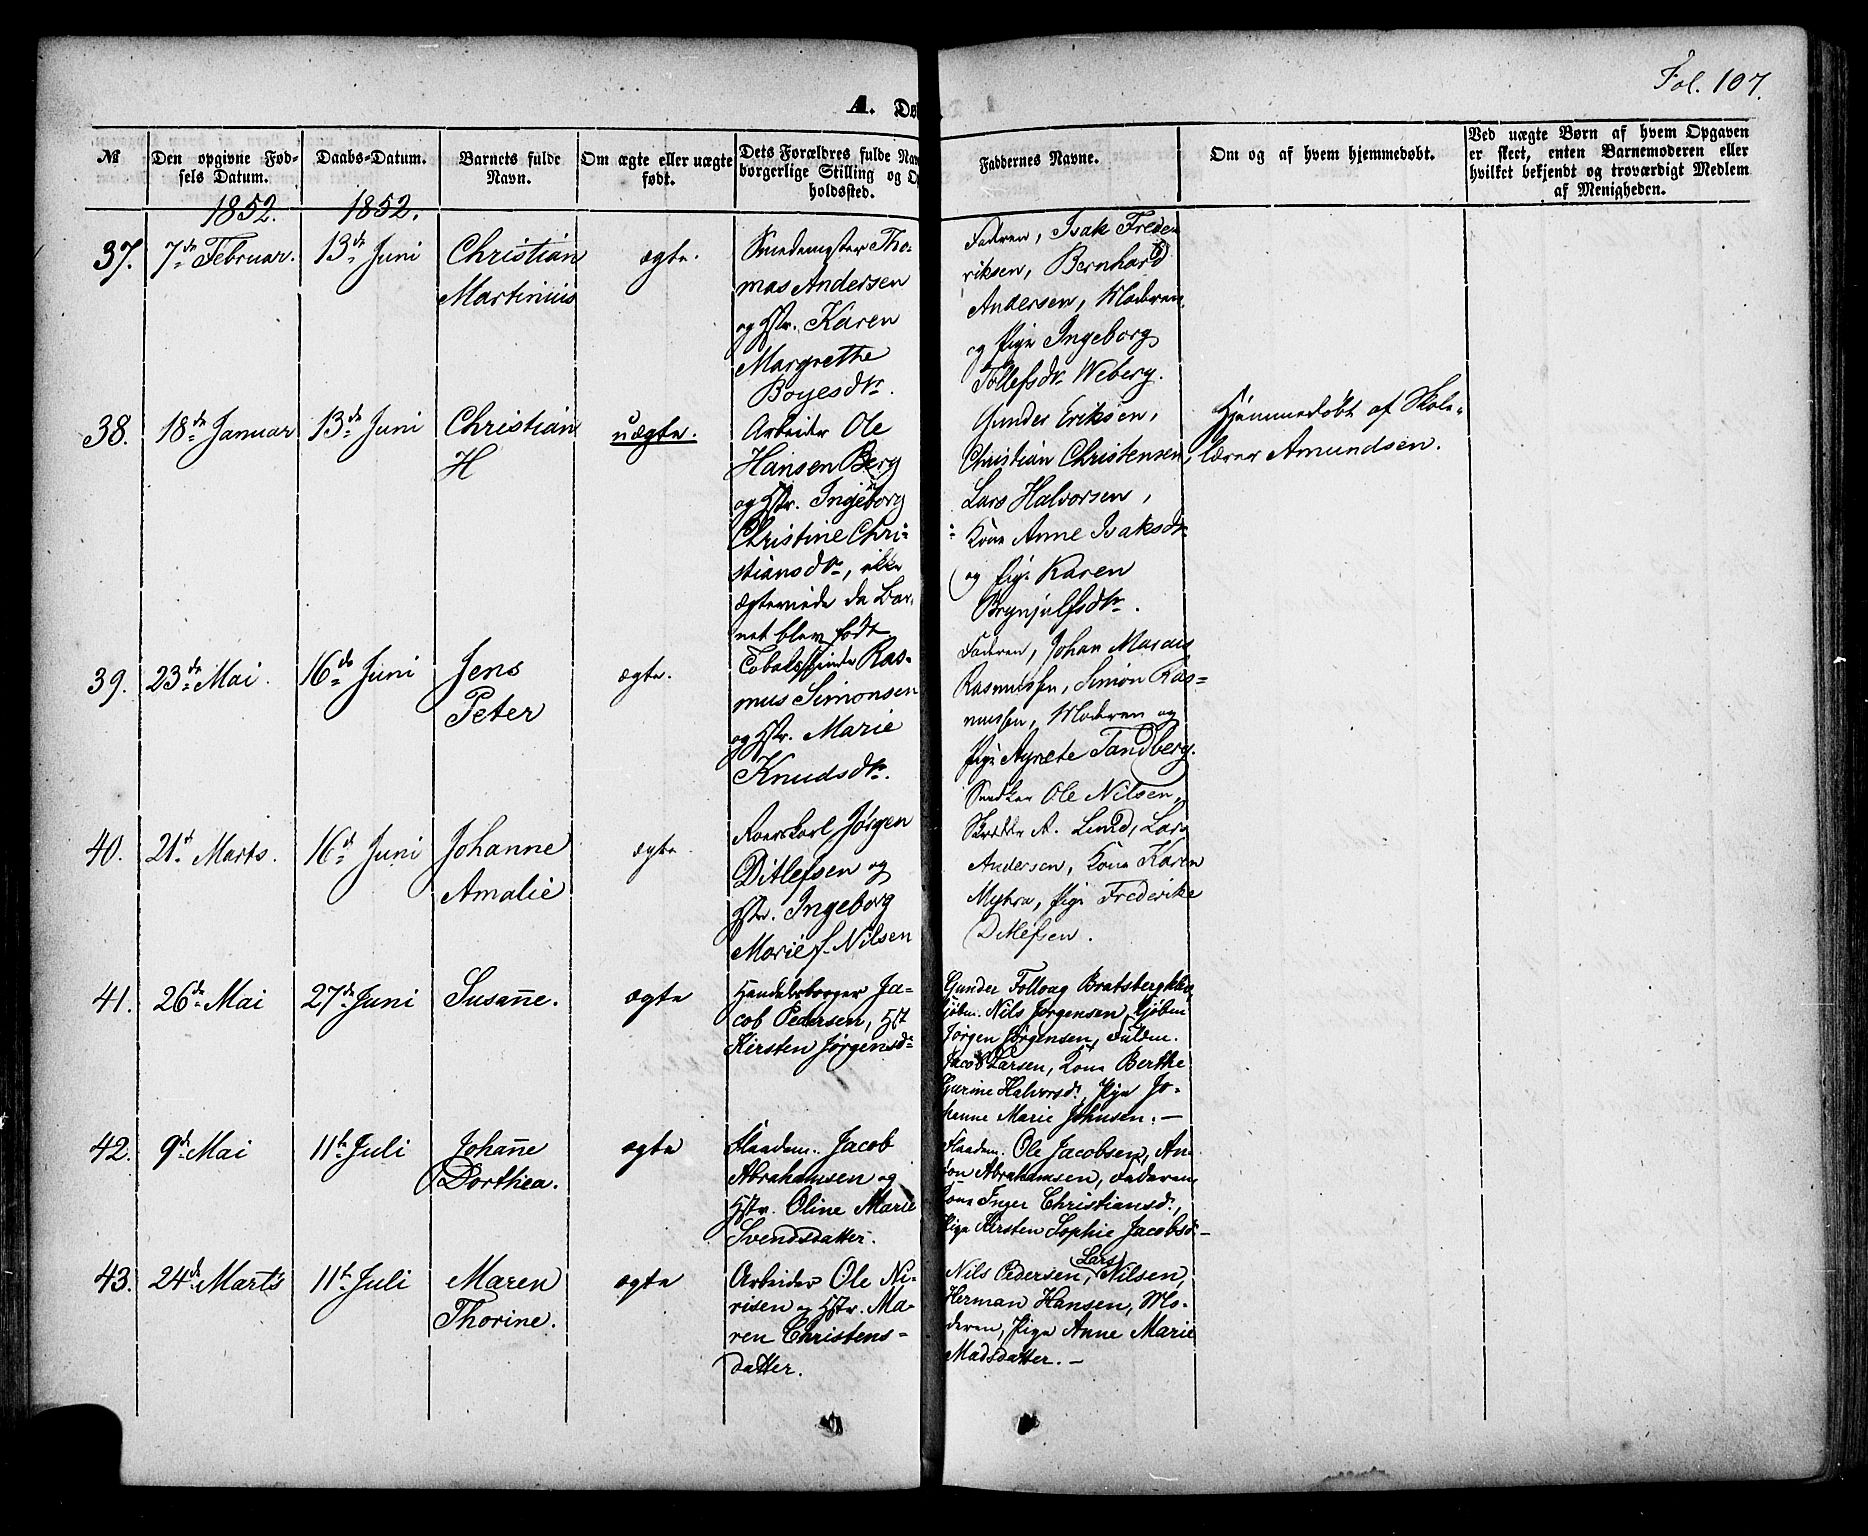 Fol. 107.
A. Dø
№
Den opgivne Fød-
sels Datum.
Daabs-Datum.
Barnets fulde
Navn.
Om ægte eller uægte
født.
Dets Forældres fulde Nav
borgerlige Stilling og O
holdssted.
Faddernes Navne.
Om og af hvem hjemmedøbt.
Ved uægte Børn af hvem Opgaven
er skeet, enten Barnemoderen eller
hvilket bekjendt og troværdigt Medlem
af Menigheden.
1852.
1852.
37.
7de Februar.
13de Juni
Christian
Martinius
ægte.
Smedemester Tho-
mas Andersen
og Hstr. Karen
Margrethe
Boyesdtr.
Faderen, Isak Frede-
riksen, Bernhard
Andersen, Moderen
og Pige Ingeborg
Tollefsdtr Weberg.
38.
18de Januar
13de Juni
Christian
H
uægte.
Arbeider Ole
Hansen Berg
og Hstr. Ingeborg
Christine Chri-
stiansdtr, ikke
ægteviede da Bar-
net blev født
Gunder Eriksen,
Christian Christensen,
Lars Halvorsen,
Kone Anne Isaksdtr
og Pige Karen
Brynjulfsdtr.
Hjemmedøbt af Skole-
lærer Amundsen.
39.
23de Mai.
16de Juni
Jens
Peter
ægte.
Ras-
mus Simonsen
og Hstr. Marie
Knudsdtr.
Faderen, Johan Marius
Rasmussen, Simon Ras-
mussen, Moderen og
Pige Agnete Tandberg.
40.
21de Marts.
16de Juni
Johanne
Amalie
ægte
Jørgen
Ditlefsen og
Hstr. Ingeborg
Marie f. Nilsen
Snedker Ole Nilsen,
Skrædder A. Lund, Lars
Andersen, Kone Karen
Myhra, Pige Frederike
Ditlefsen.
41.
26de Mai
27de Juni
Susanne.
ægte
Handelsborger Ja-
cob Pedersen, Hst
Kirsten Jørgensd:
Gunder Follaug Bratsbergklev,
Kjøbm. Nils Jørgensen, Kjøbm
Jørgen Jørgensen, Fuldm.
Jacob Larsen, Kone Berthe
Gurine Halvorsd:, Pige Jo-
hanne Marie Johnsen. —
42.
9de Mai
11te Juli
Johanne
Dorthea.
ægte
Flaadem. Jacob
Abrahamsen og
Hstr. Oline Marie
Svendsdatter.
Flaadem. Ole Jacobsen, An-
ton Abrahamsen, Faderen,
Kone Inger Christiansd:,
Pige Kirsten Sophie Jacobsd: —
43.
24de Marts
11te Juli
Maren
Thorine.
ægte
Arbeider Ole Ni-
risen og Hstr. Ma-
ren Christens-
datter.
Lars
Nils Pedersen, Nilsen,
Herman Hansen, Mo-
deren, Pige Anne Marie
Madsdatter. —